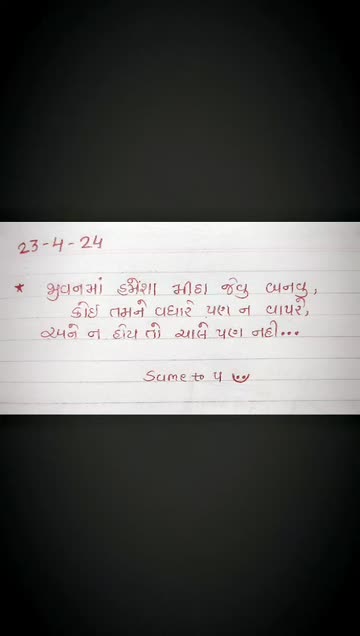 23-4-24
* જીવનમાં હંમેશા મીઠા જેવુ બનવુ,
કોઈ તમને વધારે પણ ન વાપરે,
અને ન હોય તો ચાલે પણ નહી...
Same to પ